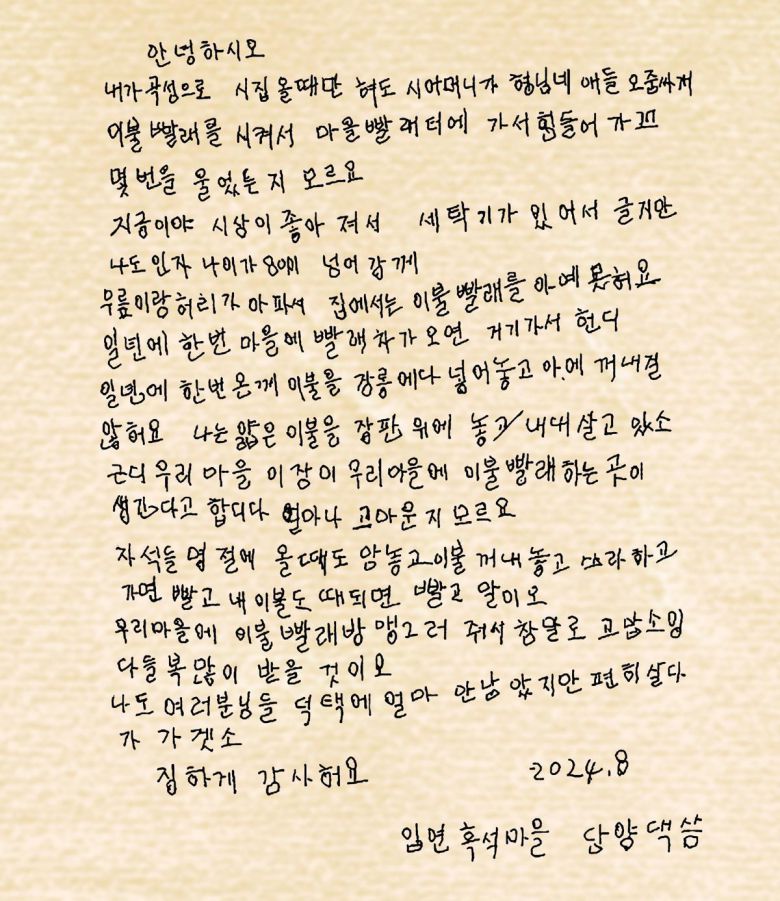 안녕하시오
내가곡성으로 시집 올때만 혀도 시어머니가 형님네 애들 오줌싸게
이불 빨래를 시켜서 마을빨래터에 가서 힘들어 가꼬
몇번을 울었든지 모르요
지금이야 시상이 좋아 져서 세탁기가 있어서 글지만
나도 인자 나이가 80이 넘어 감께
무릎이랑 허리가 아파서 집에서는 이불빨래를 아예 못허요
일년에 한번 마을에 빨래차가 오면 거기가서 헌디
일년에 한번 온께 이불을 장롱에다 넣어놓고 아에 꺼내질
않허요 나는 얇은 이불을 장판 위에 놓고 내대 살고 있소
근디 우리 마을 이장이 우리마을에 이불빨래 하는 곳이
생긴다고 합디다 얼마나 고마운지 모르요
자석들 명절에 올때도 암놓고 이불 꺼내 놓고 쓰라하고
가면 빨고 내 이불도 때되면 빨고 할미오
우리마을에 이불빨래방 맹그러 줘서 참말로 고맙소잉
다들 복 많이 받을 것이오
나도 여러분님들 덕택에 얼마 안남았지만 편히살다
가 가겟소
징하게 감사허요 2024.8
입면 흑석마을 담양댁씀